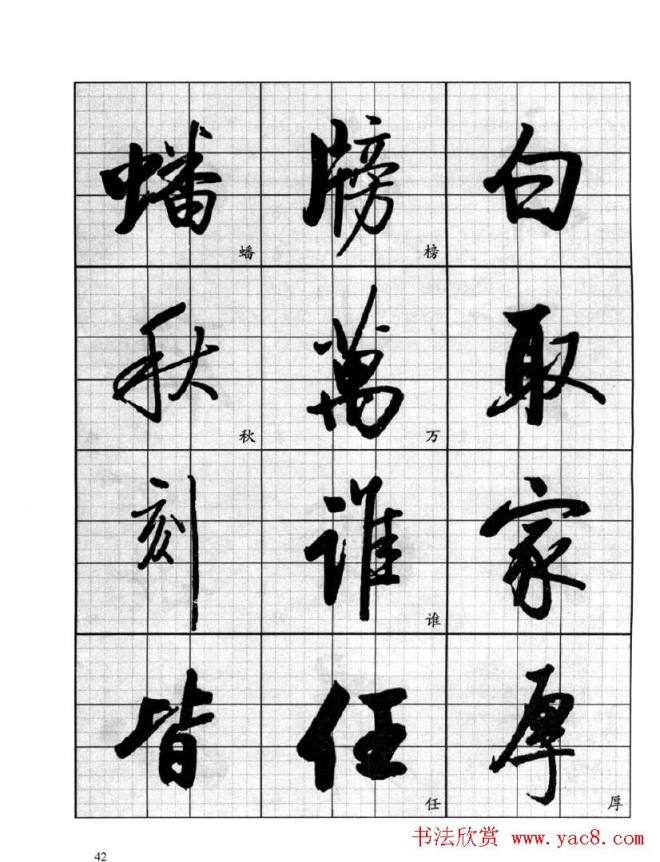 白
取
家
厚
厚
牓
榜
萬
万
誰
谁
任
任
蟠
蟠
秋
秋
刻
皆
42
书法欣赏 www.yac8.com